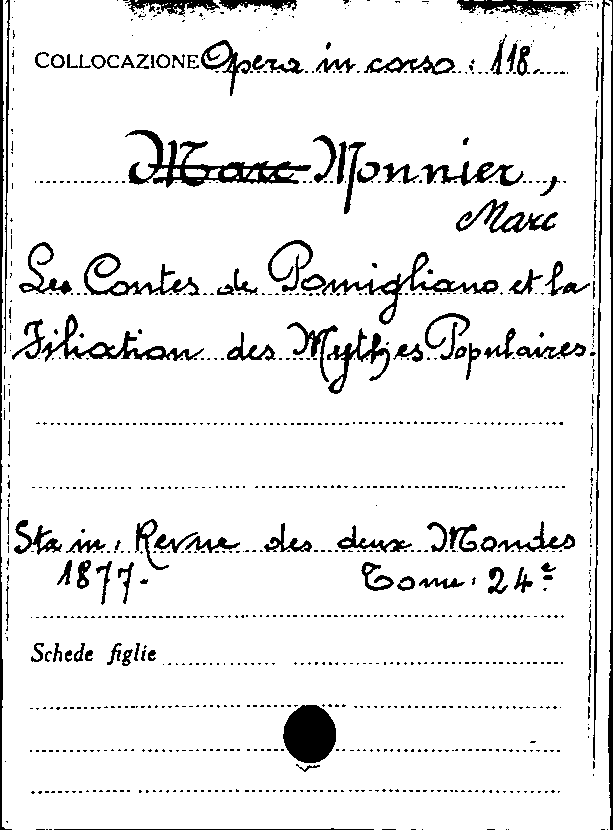 COLLOCAZIONE Opera in corso: 118.
Marc Monnier,
Marc
Les Contes de Pomigliano et la
Filiation des Mythes Populaires.
Sta in: Revue des deux Mondes
1877. Tome: 24e
Schede figlie